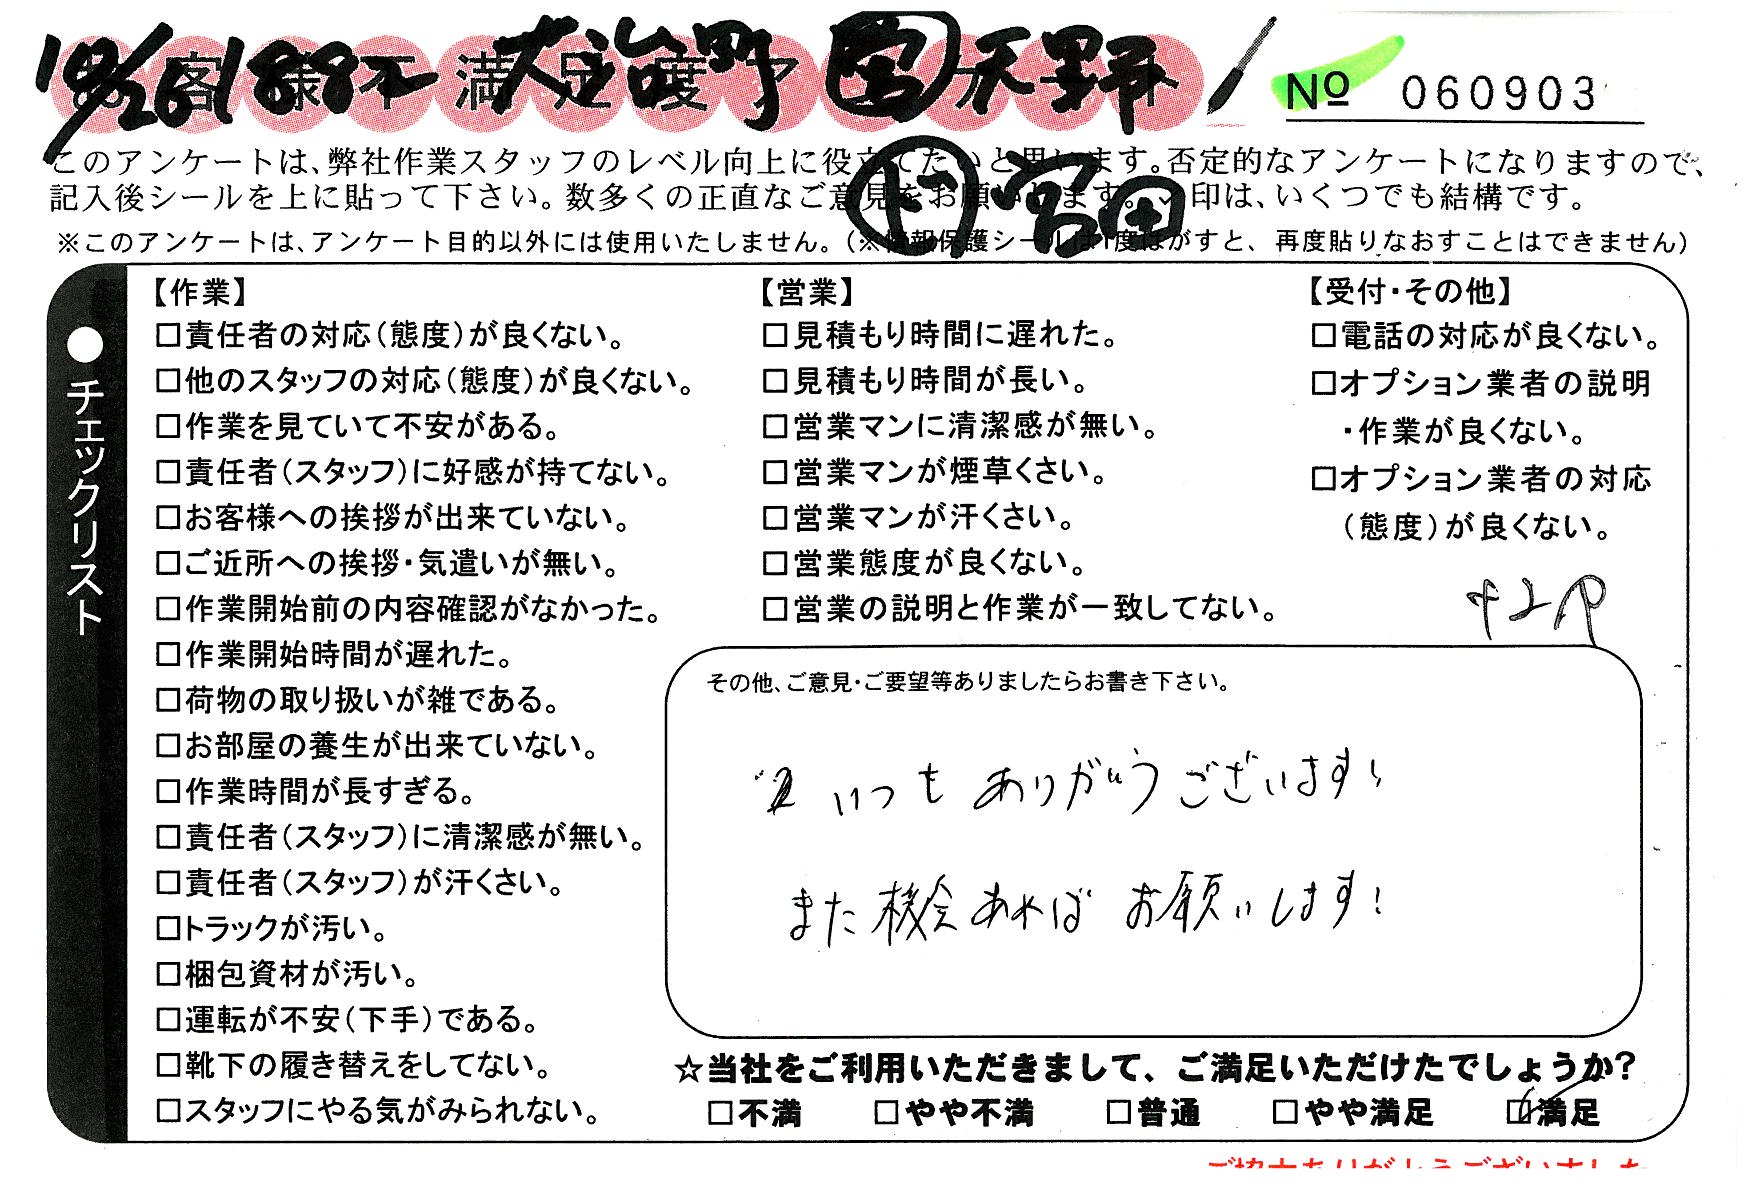 10/26 1882 大治町 営 天野
お客様不満足度アンケート
№ 060903
ト 宮田
このアンケートは、弊社作業スタッフのレベル向上に役立てたいと思います。否定的なアンケートになりますので、
記入後シールを上に貼って下さい。数多くの正直なご意見をお願いします。✓印は、いくつでも結構です。
※このアンケートは、アンケート目的以外には使用いたしません。(※情報保護シールは1度はがすと、再度貼りなおすことはできません)
●チェックリスト
【作業】
□責任者の対応(態度)が良くない。
□他のスタッフの対応(態度)が良くない。
□作業を見ていて不安がある。
□責任者(スタッフ)に好感が持てない。
□お客様への挨拶が出来ていない。
□ご近所への挨拶・気遣いが無い。
□作業開始前の内容確認がなかった。
□作業開始時間が遅れた。
□荷物の取り扱いが雑である。
□お部屋の養生が出来ていない。
□作業時間が長すぎる。
□責任者(スタッフ)に清潔感が無い。
□責任者(スタッフ)が汗くさい。
□トラックが汚い。
□梱包資材が汚い。
□運転が不安(下手)である。
□靴下の履き替えをしてない。
□スタッフにやる気がみられない。
【営業】
□見積もり時間に遅れた。
□見積もり時間が長い。
□営業マンに清潔感が無い。
□営業マンが煙草くさい。
□営業マンが汗くさい。
□営業態度が良くない。
□営業の説明と作業が一致してない。
【受付・その他】
□電話の対応が良くない。
□オプション業者の説明
・作業が良くない。
□オプション業者の対応
(態度)が良くない。
その他、ご意見・ご要望等ありましたらお書き下さい。
いつも ありがとうございます!
また機会あれば お願いします!
☆当社をご利用いただきまして、ご満足いただけたでしょうか?
□不満 □やや不満 □普通 □やや満足 ☑満足
ご協力ありがとうございました